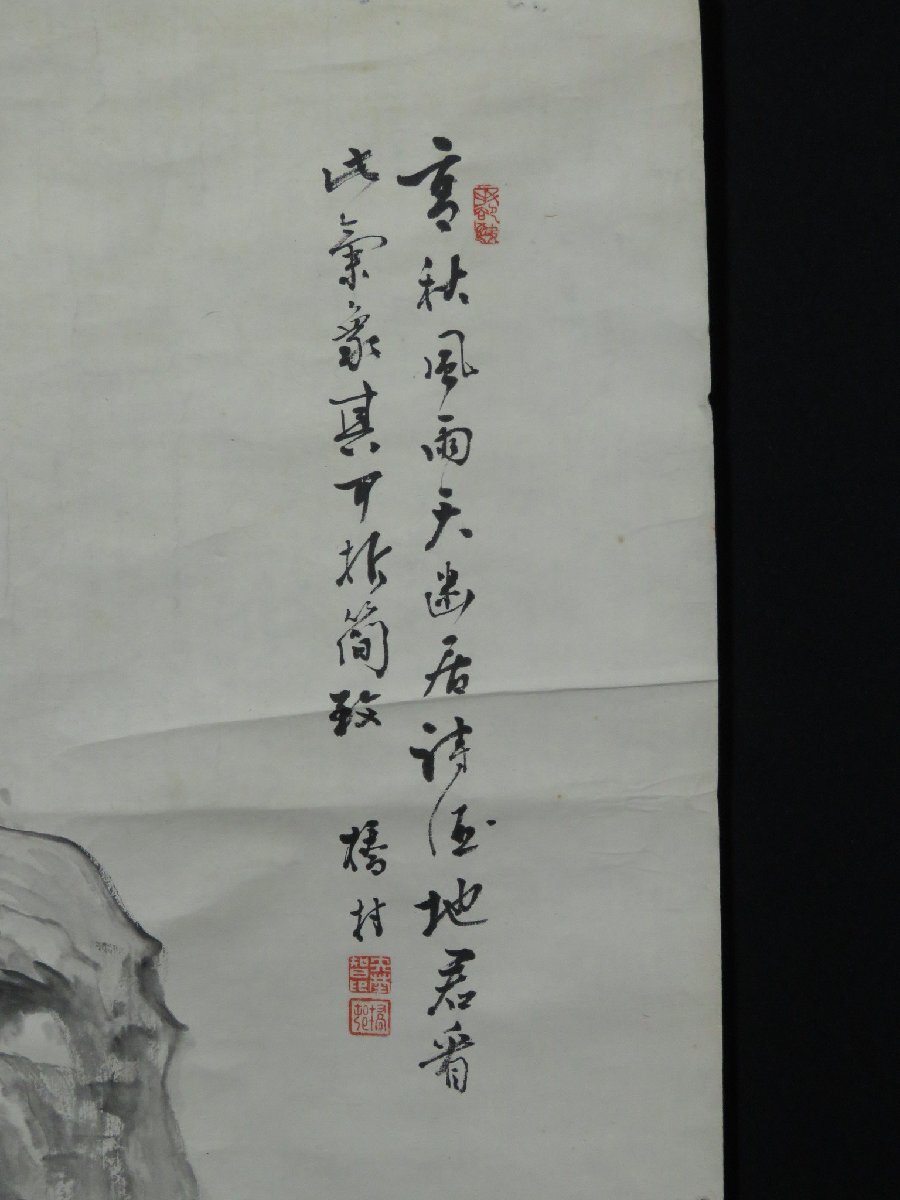 高秋風雨天幽居詩酒地君看
此氣象其可折簡致
橋村